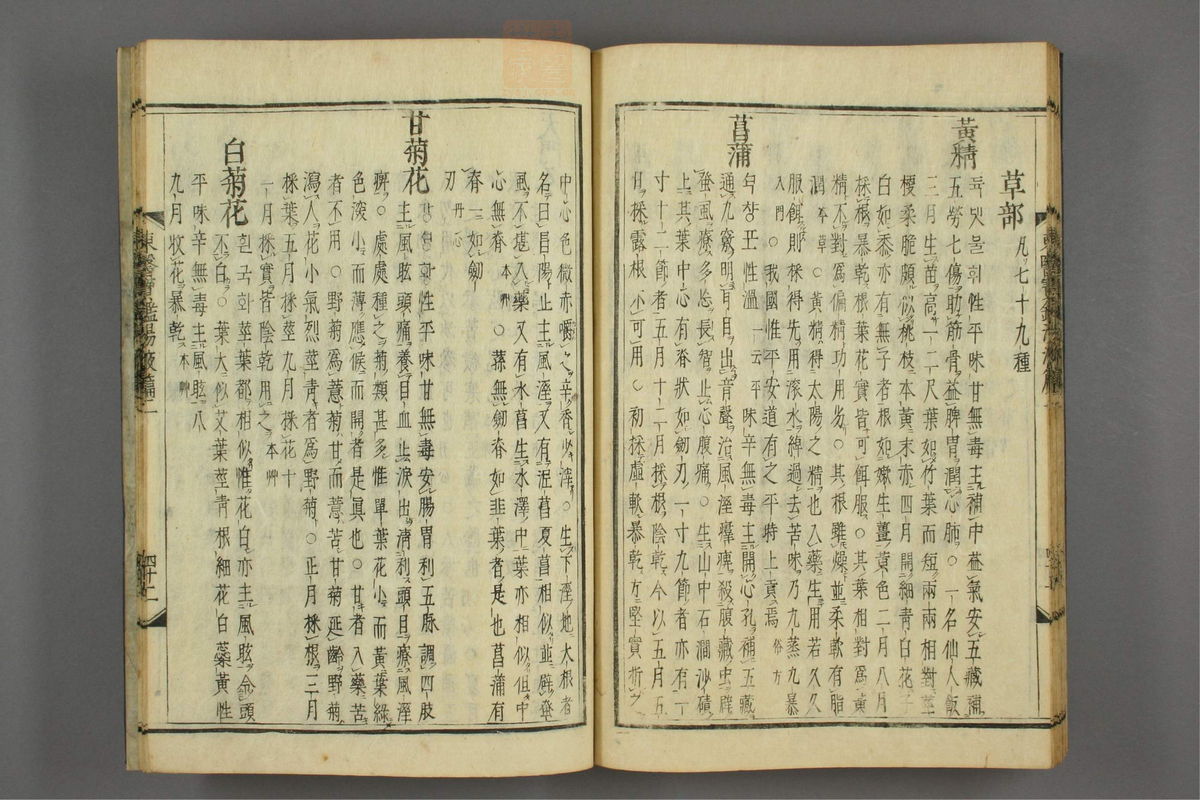 草部 凡七十九種
黃精 듁댓불휘性平味甘無毒主補中益氣安五藏補
五勞七傷助筋骨益脾胃潤心肺○一名仙人飯
三月生苗高一二尺葉如竹葉而短兩兩相對莖
梗柔脆頗似桃枝本黃末赤四月開細靑白花子
白如黍亦有無子者根如嫩生薑黃色二月八月
採根暴乾根葉花實皆可餌服○其葉相對爲黃
精不對爲偏精功用劣○其根雖燥並柔軟有脂
潤 本草 ○黃精得太陽之精也入藥生用若久久
服餌則採得先用滾水綽過去苦味乃九蒸九暴
入門 ○我國惟平安道有之平時上貢焉 俗方
菖蒲 셕챵포性溫 一云平 味辛無毒主開心孔補五藏
通九竅明耳目出音聲治風濕𤸷痺殺腹藏虫辟
蚤虱療多忘長智止心腹痛○生山中石澗沙磧
上其葉中心有脊狀如劒刃一寸九節者亦有一
寸十二節者五月十二月採根陰乾今以五月五
日採露根不可用○初採虛軟暴乾方堅實折之
中心色微赤嚼之辛香少滓○生下濕地大根者
名曰昌陽止主風濕又有泥菖夏菖相似並辟蚤
風不堪入藥又有水菖生水澤中葉亦相似但中
心無脊 本草 ○蓀無劒脊如韭葉者是也菖蒲有
脊一如劒
刃 丹心
甘菊花 강셩황性平味甘無毒安腸胃利五脉調四肢
主風眩頭痛養目血止淚出淸利頭目療風濕
痺○處處種之菊類甚多惟單葉花小而黃葉綠
色深小而薄應候而開者是眞也○甘者入藥苦
者不用○野菊爲薏菊甘而薏苦甘菊延齡野菊
瀉人花小氣烈莖靑者爲野菊○正月採根三月
採葉五月採莖九月採花十
一月採實皆陰乾用之 本艸
白菊花 흰국화莖葉都相似惟花白亦主風眩令頭
不白○葉大似艾葉莖靑根細花白蘂黃性
平味辛無毒主風眩八
九月收花暴乾 本艸
東醫寶鑑湯液篇二
四十二